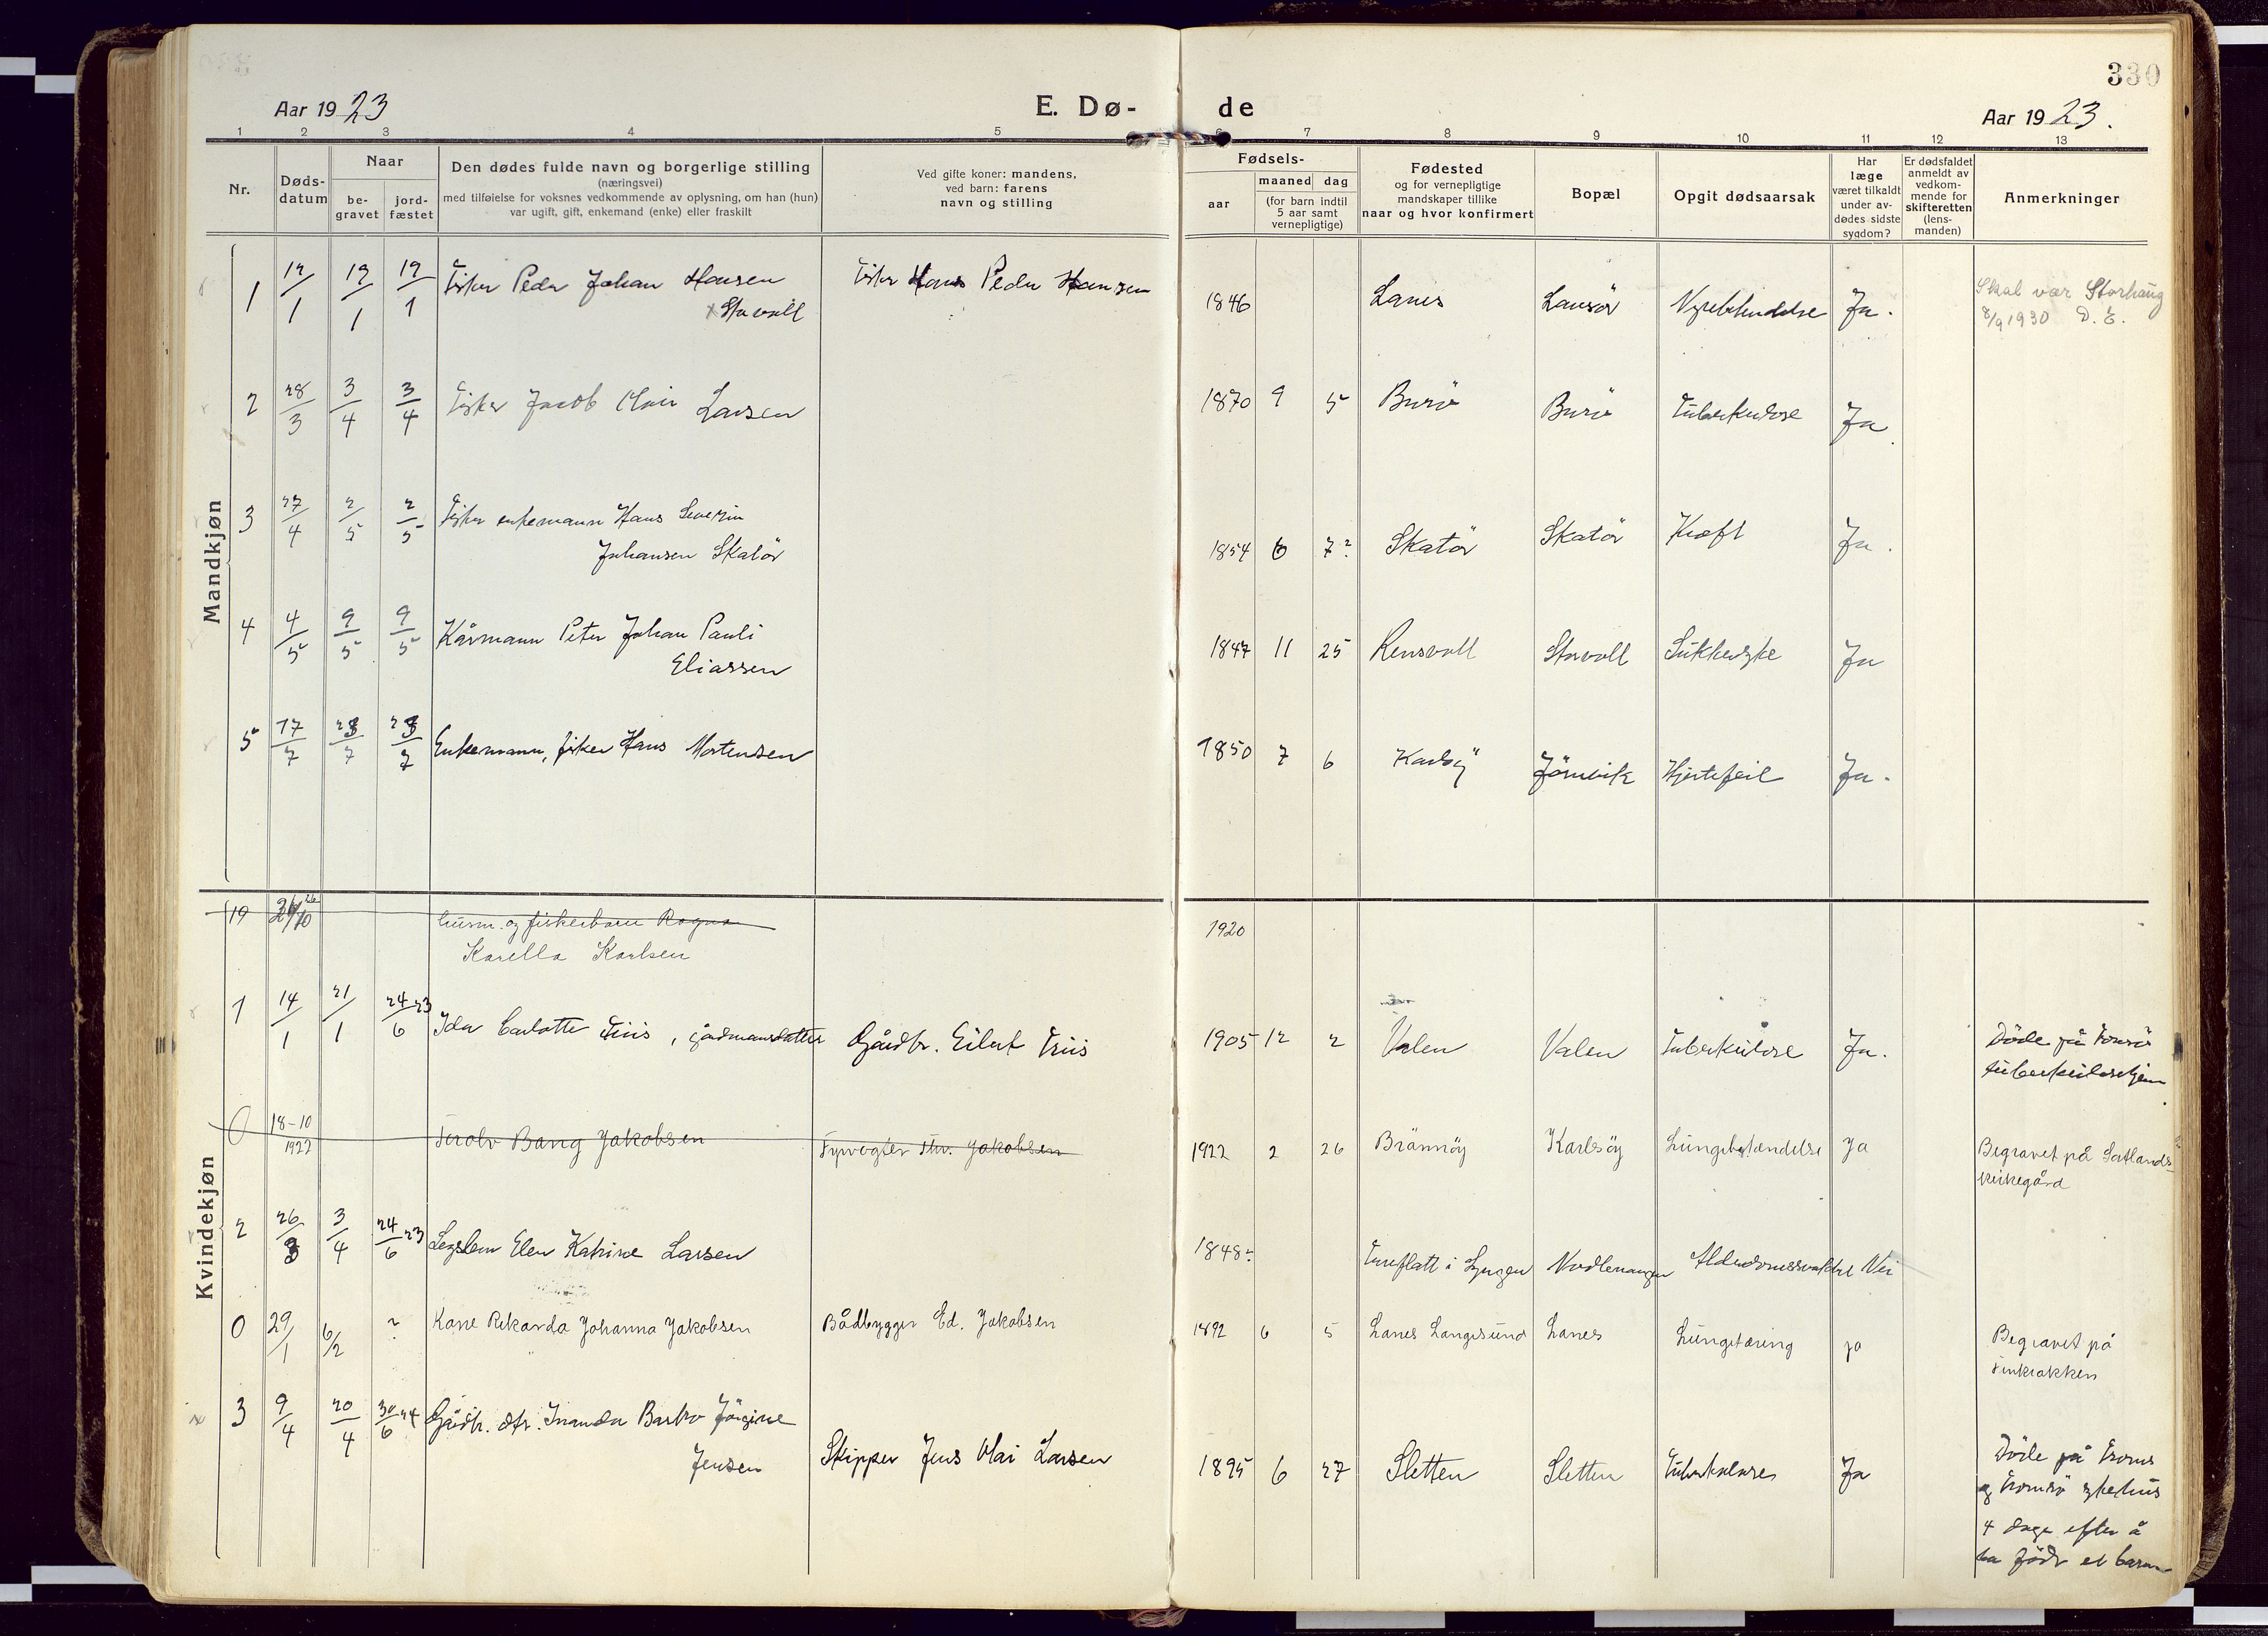 330
Aar 1923
E. Dø-
de
Aar 1923.
1 2 3 4 5 6 7 8 9 10 11 12 13
Nr.
Døds-
datum
Naar
be-
gravet
jord-
fæstet
Den dødes fulde navn og borgerlige stilling
(næringsvei)
med tilføielse for voksnes vedkommende av oplysning, om han (hun)
var ugift, gift, enkemand (enke) eller fraskilt
Ved gifte koner: mandens,
ved barn: farens
navn og stilling
Fødsels-
aar
maaned dag
(for barn indtil
5 aar samt
vernepligtige)
Fødested
og for vernepligtige
mandskaper tillike
naar og hvor konfirmert
Bopæl
Opgit dødsaarsak
Har
læge
været tilkaldt
under av-
dødes sidste
sygdom?
Er dødsfaldet
anmeldt av
vedkom-
mende for
skifteretten
(lens-
manden)
Anmerkninger
Mandkjøn
1 12/1 19/1 19/1 Fisker Peder Johan Hansen Fisker Hans Peder Hansen 1846 Lanes Lansör Ja. Skal vær Storhaug
x Storvoll 8/9 1930 D. E.
2 28/3 3/4 3/4 Fisker Jacob Olai Larsen 1870 9 5 Burö Burö Tuberkulose Ja
3 27/4 2/5 2/5 Fisker enkemann Hans Severin
Johansen Skatör 1854 6 7? Skatör Skatör Kreft Ja.
4 4/5 9/5 9/5 Kårmann Peter Johan Pauli 1847 11 25 Rensvoll Storvoll Sukkersyke Ja
Eliassen
5 17/7 23/7 23/7 Enkemann, fisker Hans Mortensen 1850 7 6 Karlsöy Jörnvik Hjertefeil Ja.
Kvindekjøn
19 26/10 husm. og fiskerbarn Ragna 1920
Karella Karlsen
1 14/1 21/1 24/6 23 Ida Carlotte Friis, gårdmansdatter Gårdbr. Eilert Friis 1905 12 2 Valen Valen Tuberkulose Ja. Döde på Tromsö
tuberkulosehjem
0 18-10 1922 Torolv Bang Jakobsen Fyrvogter Thv. Jakobsen 1922 2 26 Brännöy Karlsöy Lungebetændelse ja Begravet på Sørlands-
kirkegård
2 26/3 3/4 24/6 23 Legslem Elen Katrine Larsen 1848? i Lyngen Nordlenangen Alderdomssvakhet Nei
0 29/1 6/2 ? Kone Rikarda Johanna Jakobsen Bådbygger Ed. Jakobsen 1892 6 5 Lanes Langesund Lanes Lungetæring ja Begravet på
Finkrokken
3 9/4 20/4 30/6 24 Gårdbr. dtr. Inanda Barbro Jörgine
Jensen Skipper Jens Olai Larsen 1895 6 27 Sletten Sletten Tuberkulose Ja Döde på Troms
og Tromsö sykehus
4 dage efter å
ha född et barn